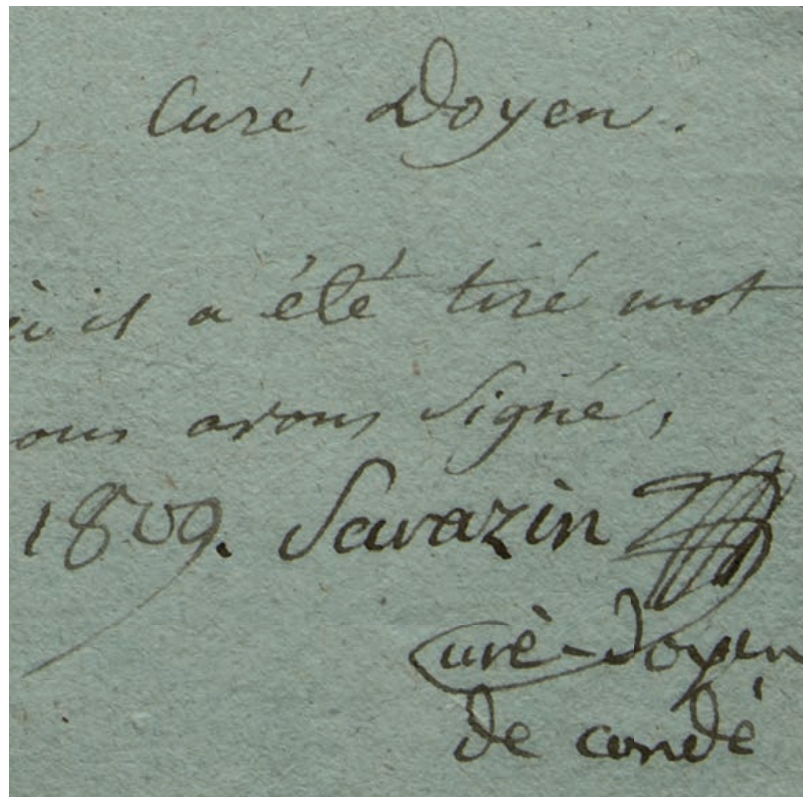 Curé Doyen.
il a été tiré mot
ous avons signé,
1809. Savazin
Curè-doyen
de condé